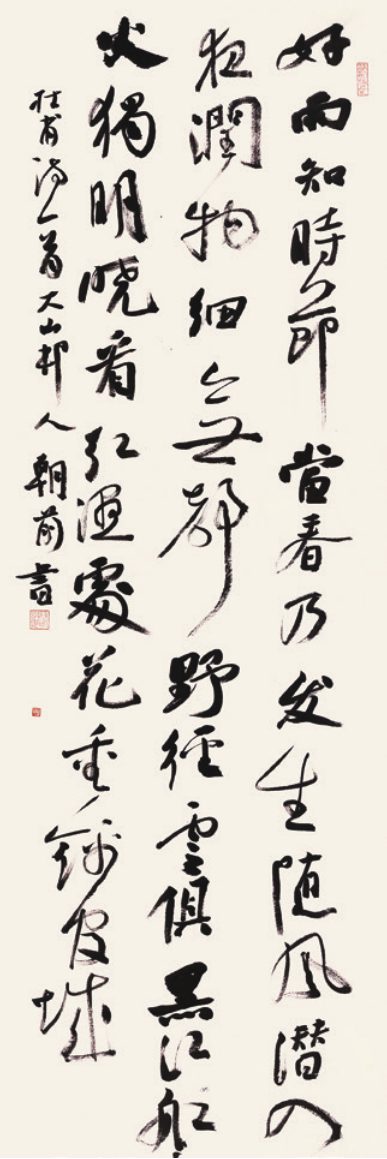 好雨知時節當春乃发生随风潛入
夜潤物細無聲野徑雲俱黑江船
火獨明晓看红濕處花重錦官城
杜甫诗一首大山邨人朝前書